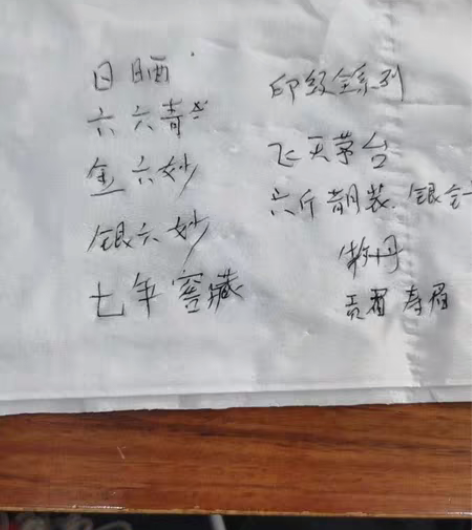 日晒
六六青
金六妙
银六妙
七年窖藏
印级全系列
飞天茅台
六斤散装.银针
牡丹
贡眉 寿眉